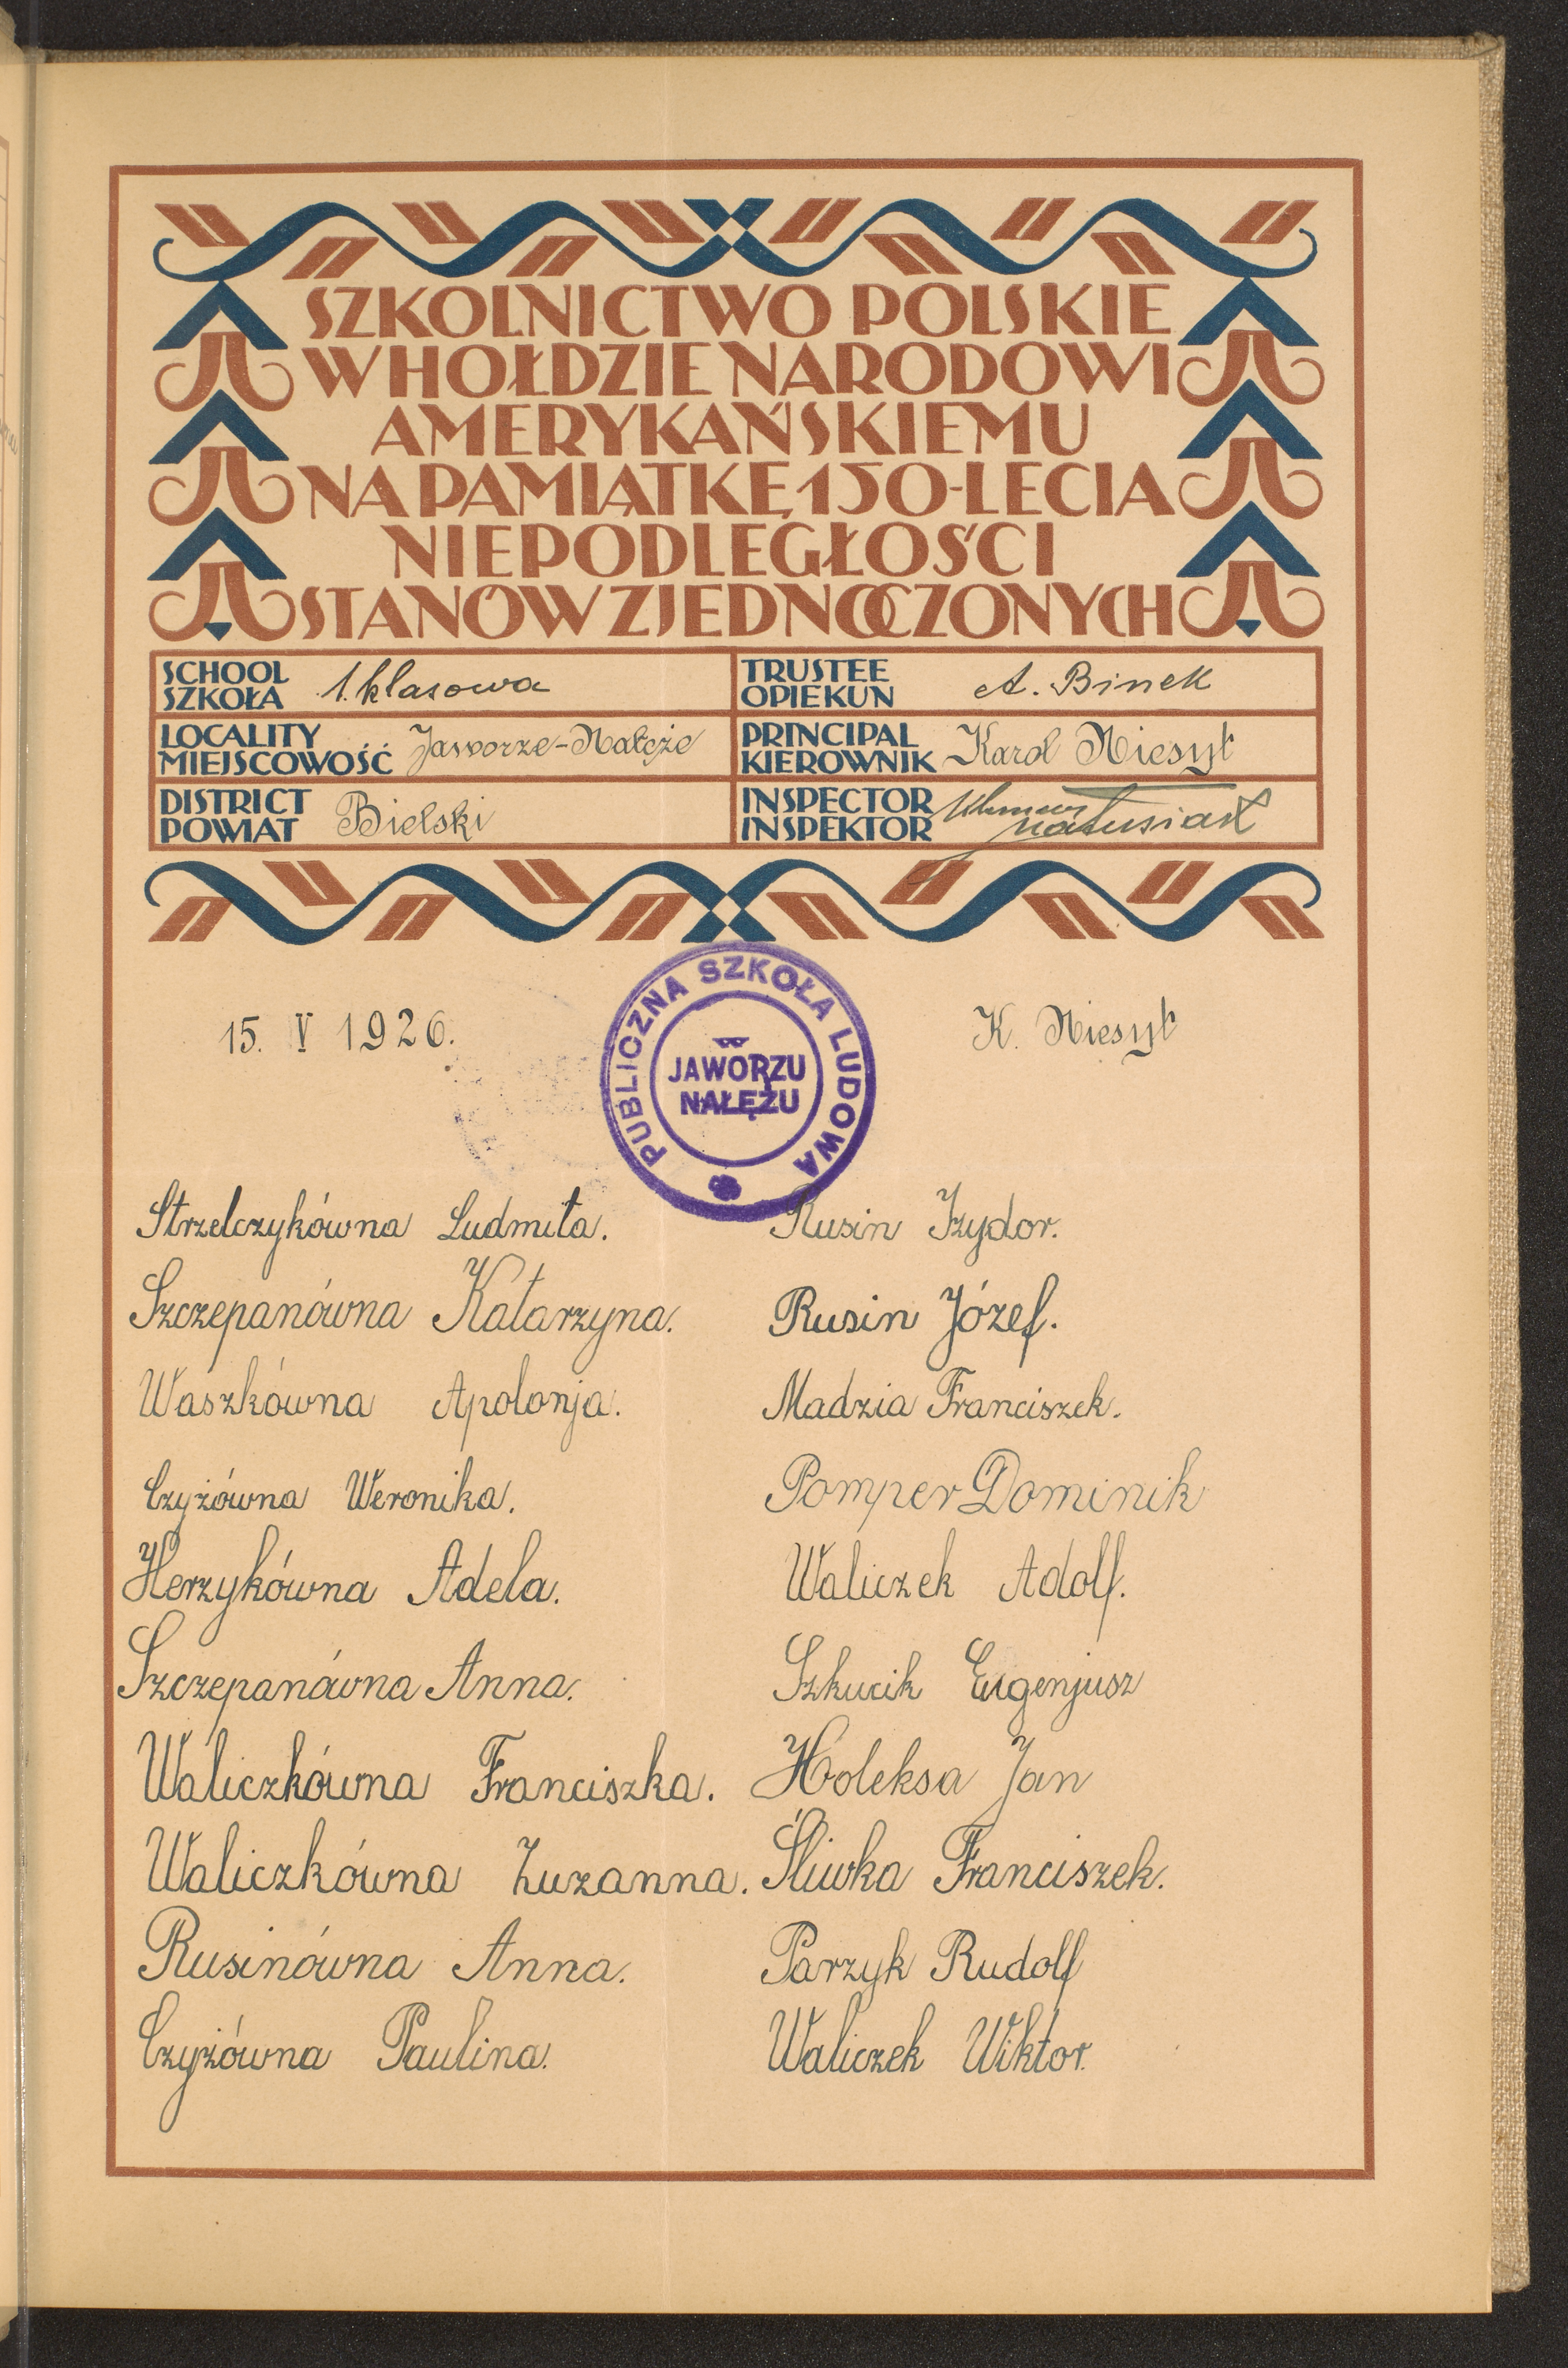 SZKOLNICTWO POLSKIE
W HOŁDZIE NARODOWI
AMERYKAŃSKIEMU
NA PAMIĄTKĘ 150-LECIA
NIEPODLEGŁOŚCI
STANÓW ZJEDNOCZONYCH
SCHOOL
SZKOŁA 1. klasowa
TRUSTEE
OPIEKUN A. Binek
LOCALITY
MIEJSCOWOŚĆ Jaworze-Nałęże
PRINCIPAL
KIEROWNIK Karol Niesyt
DISTRICT
POWIAT Bielski
INSPECTOR
INSPEKTOR Matusiak
15. V 1926.
PUBLICZNA SZKOŁA LUDOWA
w
JAWORZU
NAŁĘŻU
K. Niesyt
Strzelczykówna Ludmiła.
Rusin Izydor.
Szczepanówna Katarzyna.
Rusin Józef.
Waszkówna Apolonja.
Madzia Franciszek.
Czyżówna Weronika.
Pomper Dominik
Herzykówna Adela.
Waliczek Adolf.
Szczepanówna Anna.
Szkucik Eugenjusz
Waliczkówna Franciszka.
Holeksa Jan
Waliczkówna Zuzanna.
Śliwka Franciszek.
Rusinówna Anna.
Parzyk Rudolf
Czyżówna Paulina.
Waliczek Wiktor.